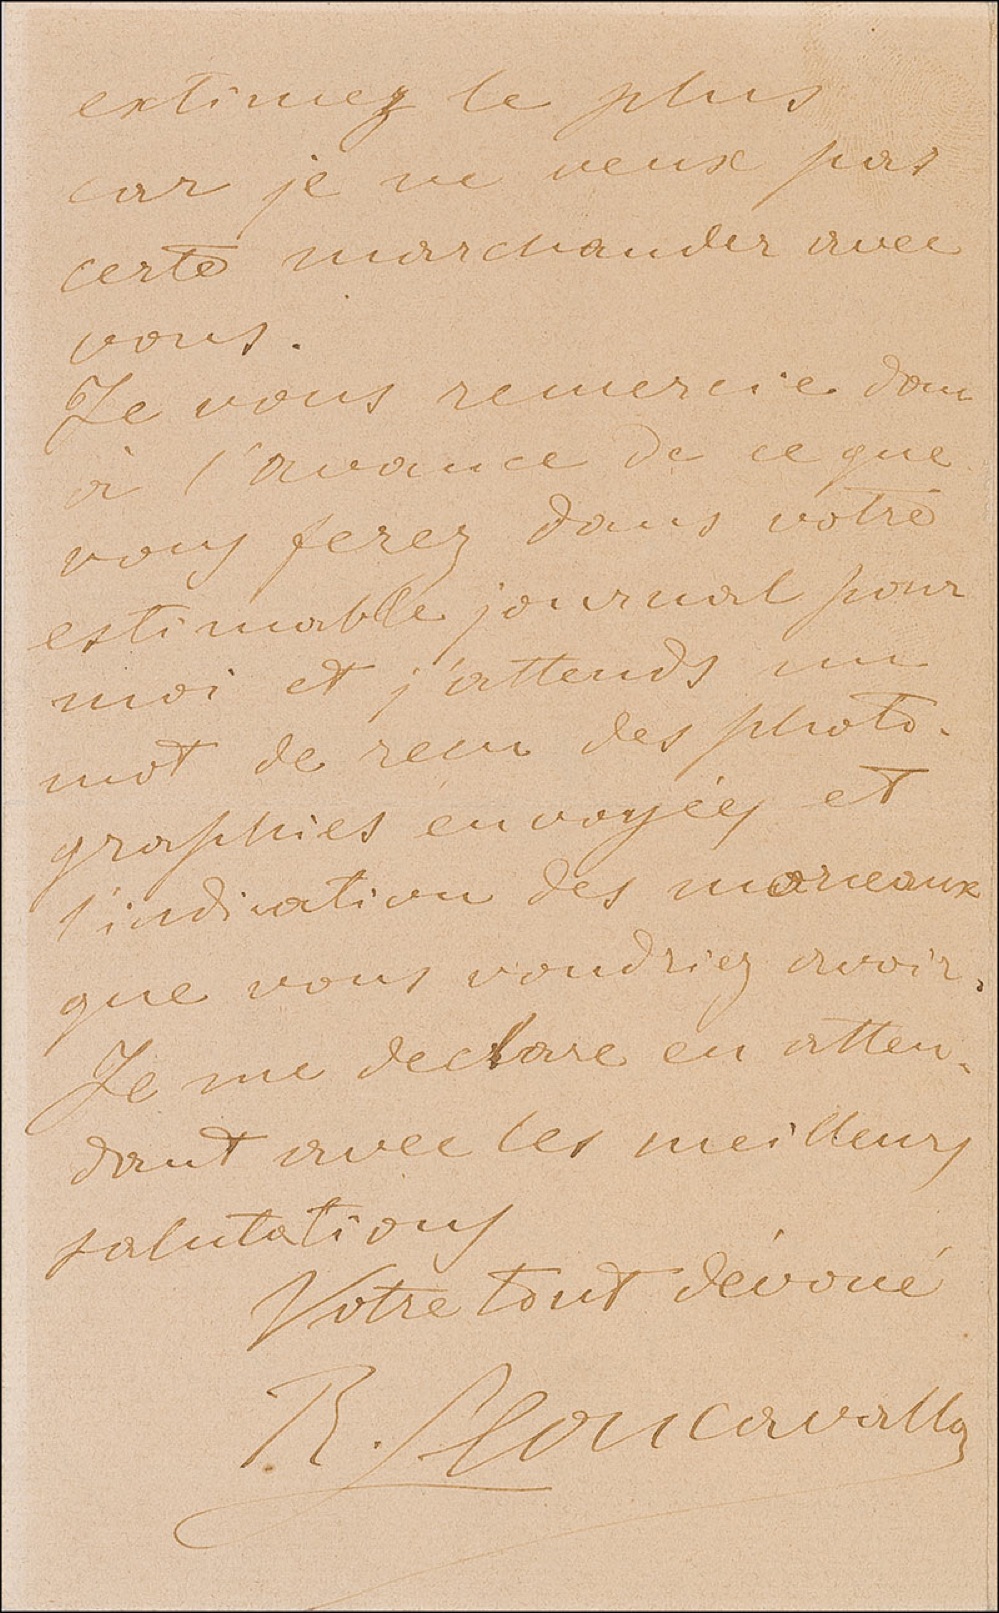 extimez le plus
car je ne veux pas
certe marchander avec
vous.
Je vous remercie donc
à l'avance de ce que
vous ferez dans votre
estimable journal pour
moi et j'attends un
mot de recu des photo-
graphies envoyées et
l'indication des morceaux
que vous voudriez avoir.
Je me declare en atten-
dant avec les meilleurs
salutations
Votre tout dévoué
R. Leoncavallo